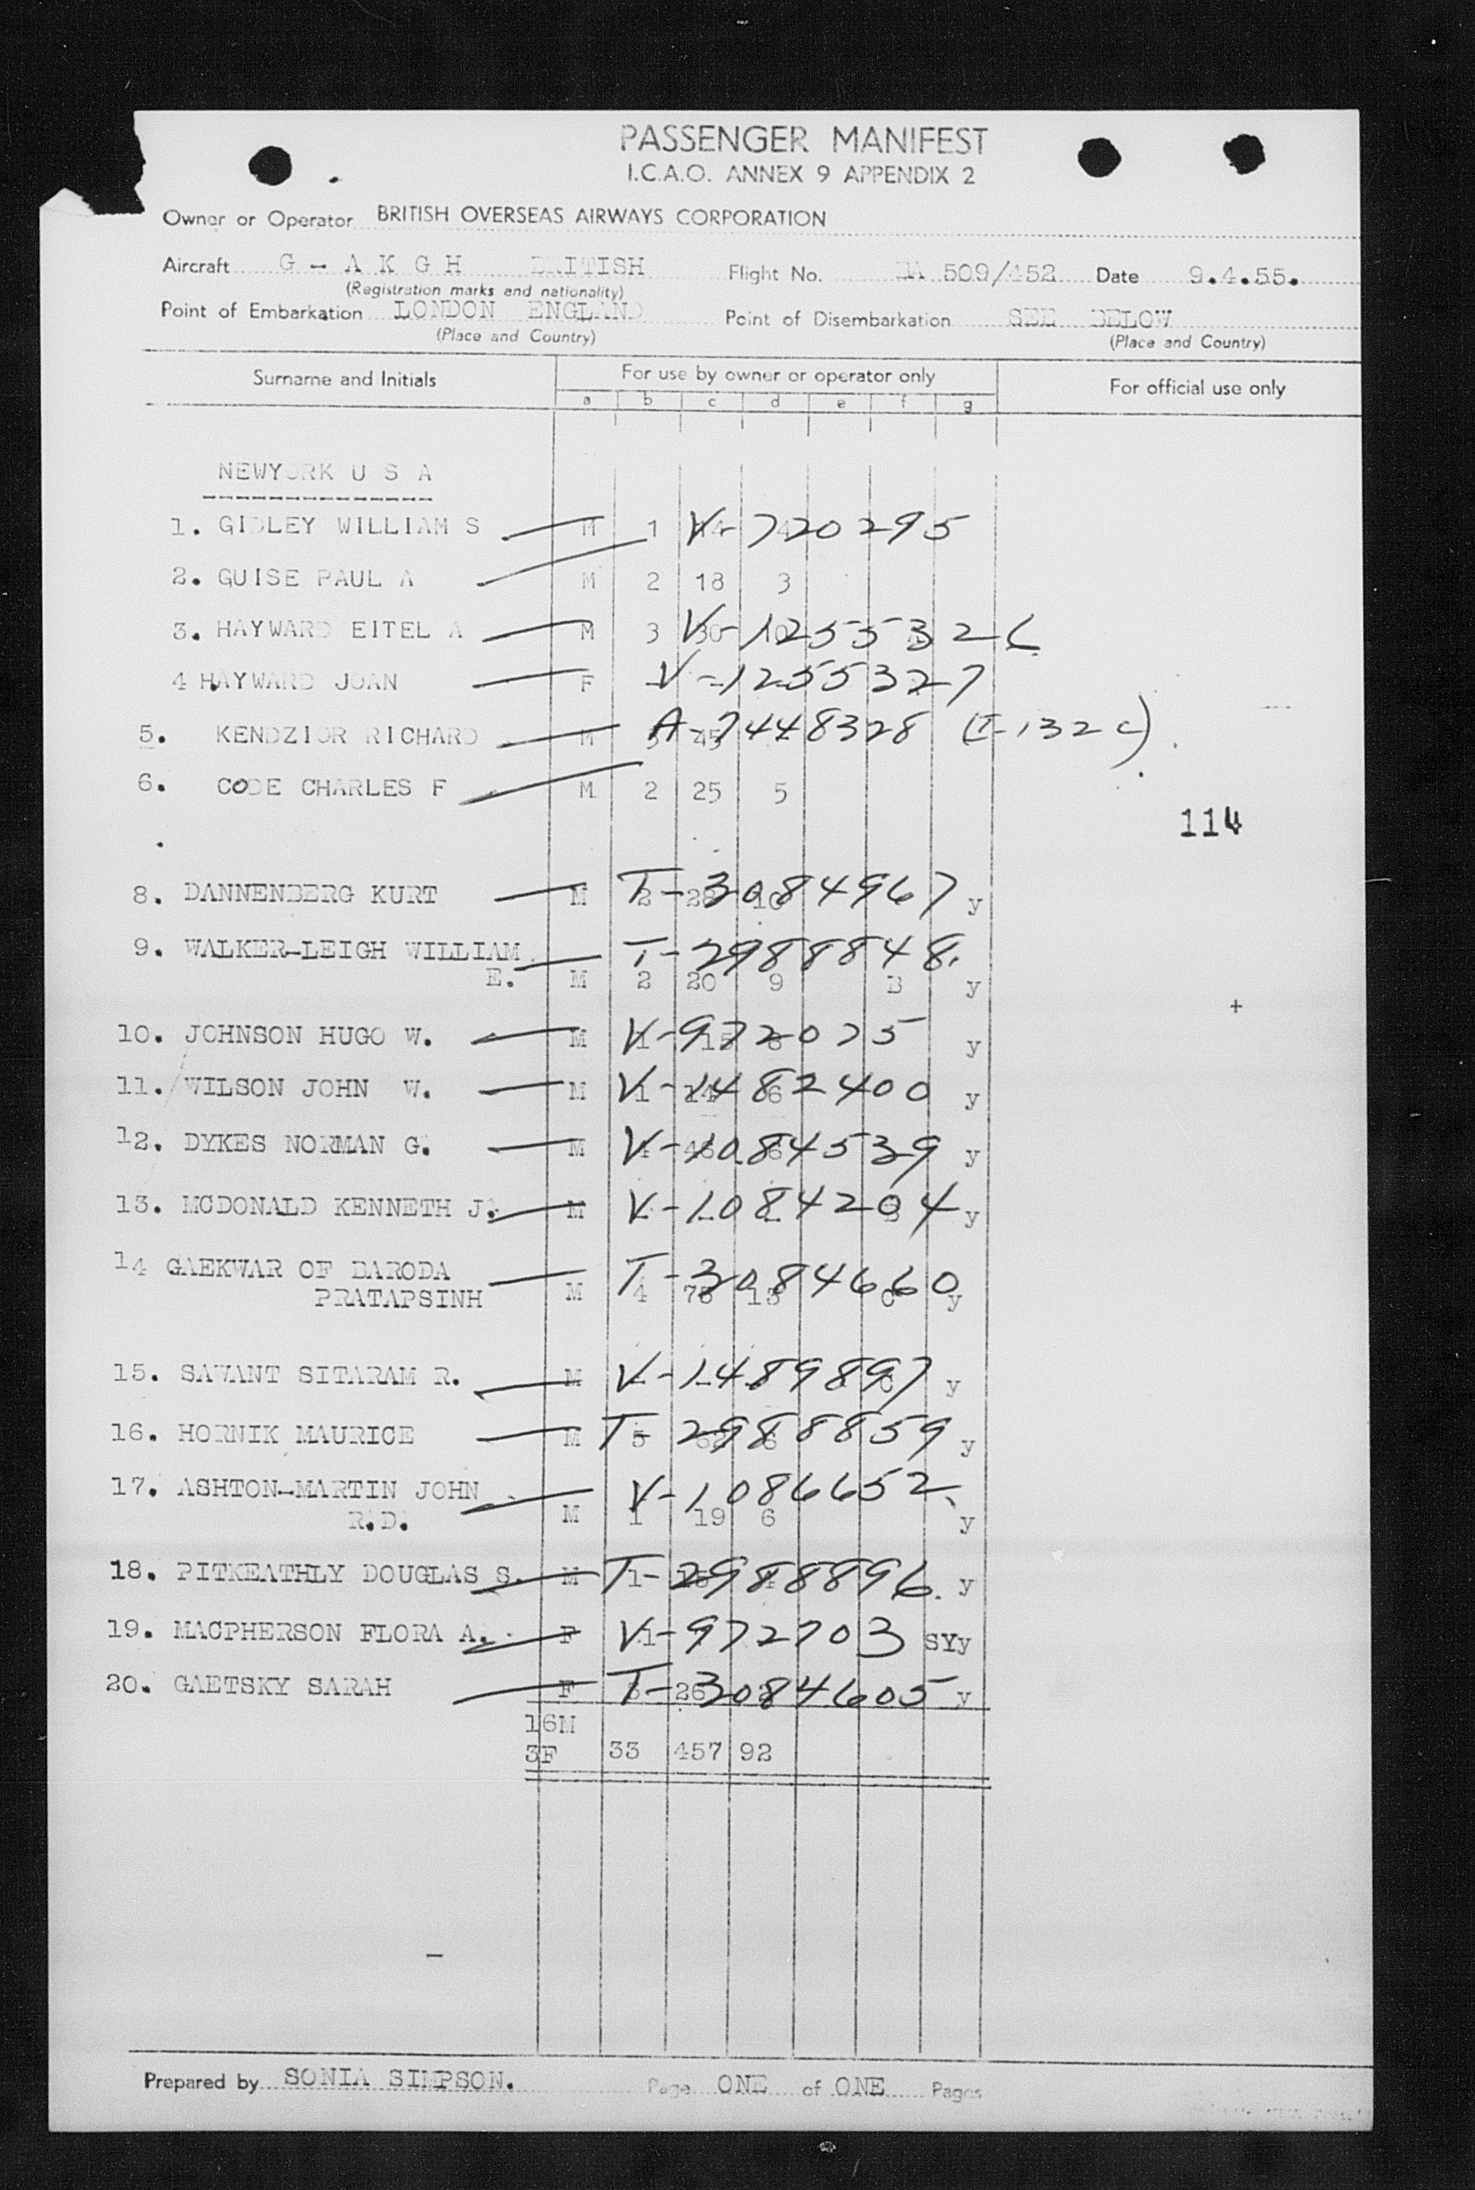 PASSENGER MANIFEST
I.C.A.O. ANNEX 9 APPENDIX 2
Owner or Operator BRITISH OVERSEAS AIRWAYS CORPORATION
Aircraft G - A K G H BRITISH Flight No. BA 509/452 Date 9.4.55.
(Registration marks and nationality)
Point of Embarkation LONDON ENGLAND Point of Disembarkation SEE BELOW
(Place and Country) (Place and Country)
Surname and Initials For use by owner or operator only For official use only
a b c d e f g
NEWYORK U S A
1. GIDLEY WILLIAM S M 1 V-720295
2. GUISE PAUL A M 2 18 3
3. HAYWARD EITEL A M 3 V-1255326
4 HAYWARD JOAN F V-1255327
5. KENDZIOR RICHARD M A-7448328 (I-132c)
6. CODE CHARLES F M 2 25 5
114
8. DANNENBERG KURT M 2 T-3084967 y
9. WALKER-LEIGH WILLIAM T-2988848.
E. M 2 20 9 B y
10. JOHNSON HUGO W. M V-972075 y
11. WILSON JOHN W. M V-1482400 y
12. DYKES NORMAN G. M V-1084539 y
13. MCDONALD KENNETH J. M V-1084204 y
14 GAEKWAR OF BARODA T-3084660
PRATAPSINH M 4 C y
15. SAWANT SITARAM R. M V-1489897 y
16. HORNIK MAURICE M T-2988859 y
17. ASHTON-MARTIN JOHN V-1086652
R.D. M 1 19 6 y
18. PITKEATHLY DOUGLAS S. M T-2988896. y
19. MACPHERSON FLORA A. F V-972703 SYy
20. GAETSKY SARAH F T-3084605 y
16M
3F 33 457 92
Prepared by SONIA SIMPSON. Page ONE of ONE Pages